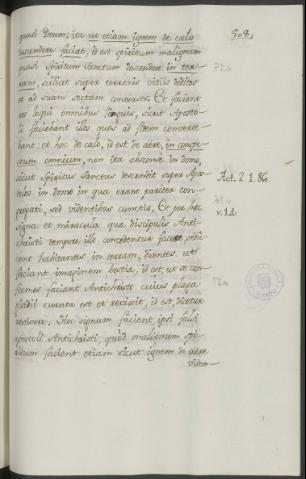 quasi Deum; ita ut etiam ignem de cælo
descendere faciat, id est spiritum malignum
quasi spiritum sanctum descendere in ter-
ram, scilicet super terrenis vitiis deditos
et ad suam sectam conversos. Et facient
eos loqui omnibus linguis, sicut Aposto-
li faciebant illos quos ad fidem converte-
bant: et hoc de cælo, id est de aëre, in conspe-
ctum omnium, non ita absconse in domo,
sicut Spiritus sanctus descendit super Apo-
stolos in domo in qua erant pariter con-
gregati, sed videntibus cunctis. Et per hæc
signa et miracula quæ discipulis Anti-
christi tempore illo concedentur facere
habitantes in terram, dicentes ut
faciant imaginem bestiæ, id est, ut se con-
formes faciant Antichristo cuius plaga
gladii curata est et revixit, id est, dicetur
revixisse. Hoc signum facient ipsi falsi
apostoli Antichristi, quod malignum spi-
ritum facient etiam sicut ignem de aëre
viden-
508,
Act. 2. 1. &c.
v. 14